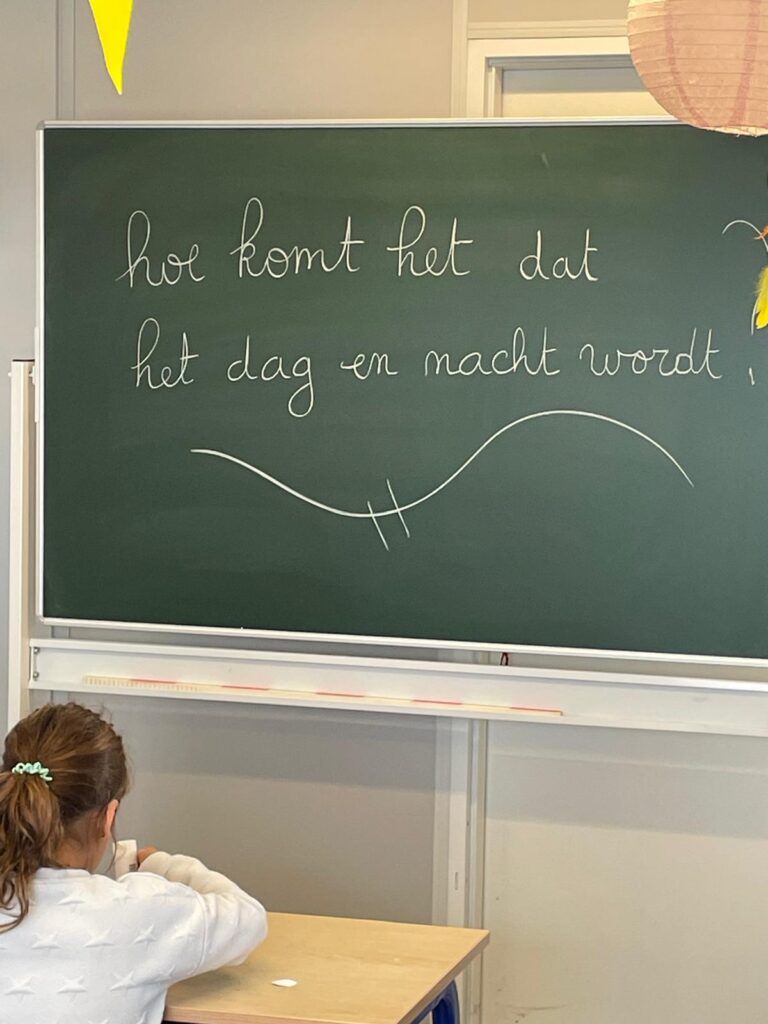 hoe komt het dat
het dag en nacht wordt